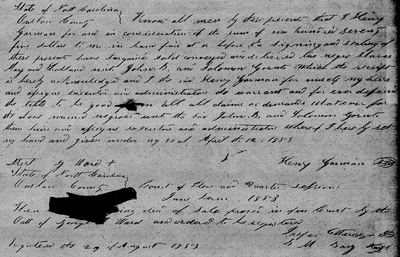 State of North Carolina
Onslow County } Know all men by these presents that I Henry
Garman for and in consideration of the sum of six hundred seventy
five dollars to me in hand paid at or before the signing and sealing of
these presents have bargained sold conveyed and delivered the negro slaves
and John B. and Solomon Gornto which the receipt
is hereby acknowledged and I the sd Henry Garman for myself my heirs
and assigns executors and administrators do warrant and for ever defend
the title to be good all claims or demands whatever for
the above named negroes unto the sd John B. and Solomon Gornto
their heirs and assigns executors and administrators whereof I hereby set
my hand and given under my seal April 12 1853
Henry Garman
Ward
State of North Carolina
Onslow County Court of Pleas and Quarter Sessions
June Term 1853
Then deed of Sale proved in open Court by the
Oath of Ward and ordered to be registered
Registered the 29 of August 1853